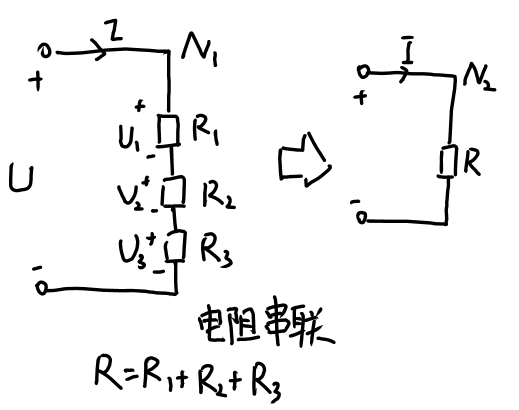 I N₁
+
U₁ + - R₁
U
U₂ + - R₂
U₃ + - R₃
-
I N₂
+
R
-
电阻串联
R=R₁+R₂+R₃